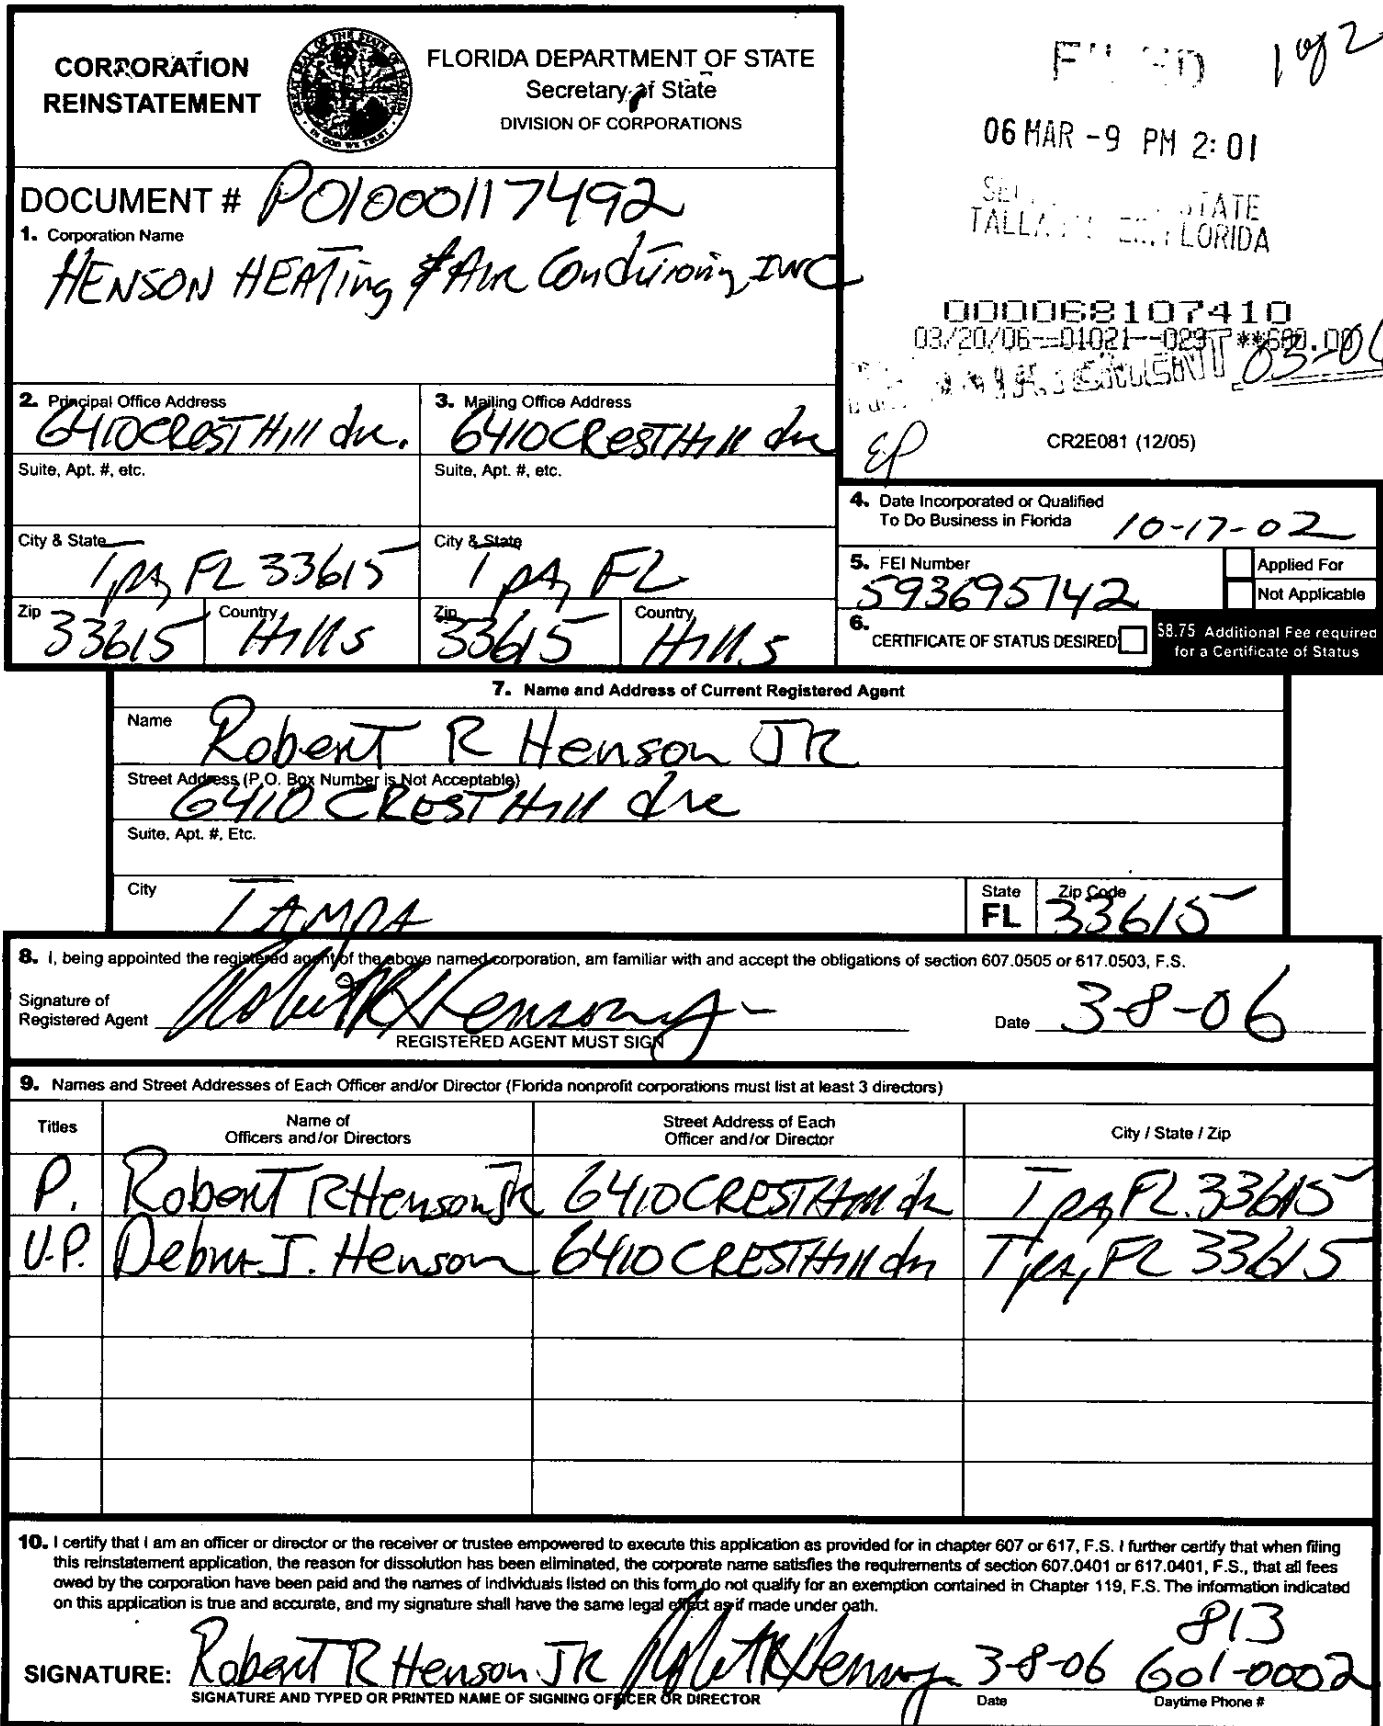 CORPORATION
REINSTATEMENT
GREAT SEAL OF THE STATE OF FLORIDA
IN GOD WE TRUST
FLORIDA DEPARTMENT OF STATE
Secretary of State
DIVISION OF CORPORATIONS
1 of 2
06 MAR -9 PM 2:01
STATE
FLORIDA
DOCUMENT # P01000117492
1. Corporation Name
HENSON HEATing & AIR Conditioning, INC
000068107410
03/20/06--01021--029 **600.00
03-06
EP
CR2E081 (12/05)
2. Principal Office Address
6410 CREST Hill dre.
3. Mailing Office Address
6410 CREST Hill dre
Suite, Apt. #, etc.
Suite, Apt. #, etc.
City & State
Tpa, FL 33615
City & State
Tpa, FL
Zip
33615
Country
Hills
Zip
33615
Country
Hills
4. Date Incorporated or Qualified
To Do Business in Florida 10-17-02
5. FEI Number
593695742
Applied For
Not Applicable
6. CERTIFICATE OF STATUS DESIRED
$8.75 Additional Fee required
for a Certificate of Status
7. Name and Address of Current Registered Agent
Name
Robert R Henson JR
Street Address (P.O. Box Number is Not Acceptable)
6410 CREST Hill dre
Suite, Apt. #, Etc.
City
TAMPA
State
FL
Zip Code
33615
8. I, being appointed the registered agent of the above named corporation, am familiar with and accept the obligations of section 607.0505 or 617.0503, F.S.
Signature of
Registered Agent Robert R Henson Jr
Date 3-8-06
REGISTERED AGENT MUST SIGN
9. Names and Street Addresses of Each Officer and/or Director (Florida nonprofit corporations must list at least 3 directors)
Titles
Name of
Officers and/or Directors
Street Address of Each
Officer and/or Director
City / State / Zip
P. Robert R Henson JR 6410 CREST Hill dr Tpa, FL. 33615
V.P. Debra J. Henson 6410 CREST Hill dr Tpa, FL 33615
10. I certify that I am an officer or director or the receiver or trustee empowered to execute this application as provided for in chapter 607 or 617, F.S. I further certify that when filing
this reinstatement application, the reason for dissolution has been eliminated, the corporate name satisfies the requirements of section 607.0401 or 617.0401, F.S., that all fees
owed by the corporation have been paid and the names of individuals listed on this form do not qualify for an exemption contained in Chapter 119, F.S. The information indicated
on this application is true and accurate, and my signature shall have the same legal effect as if made under oath.
813
SIGNATURE: Robert R Henson JR Robert R Henson Jr 3-8-06 601-0002
SIGNATURE AND TYPED OR PRINTED NAME OF SIGNING OFFICER OR DIRECTOR
Date
Daytime Phone #